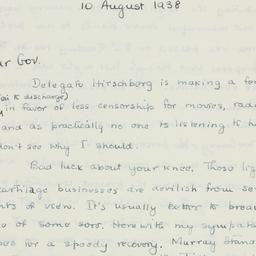 10 August 1938
ar Gov.
Delegate Hirschberg is making a
(ai to discharge)
in favor of less censorship for movies, rad
and as practically no one is listening to h
don't see why I should.
Bad luck about your knee. Those lig
cartilage businesses are devilish from se
nts of view. It's usually better to brea
of some sort. Herewith my sympath
pes for a speedy recovery. Murray Stand